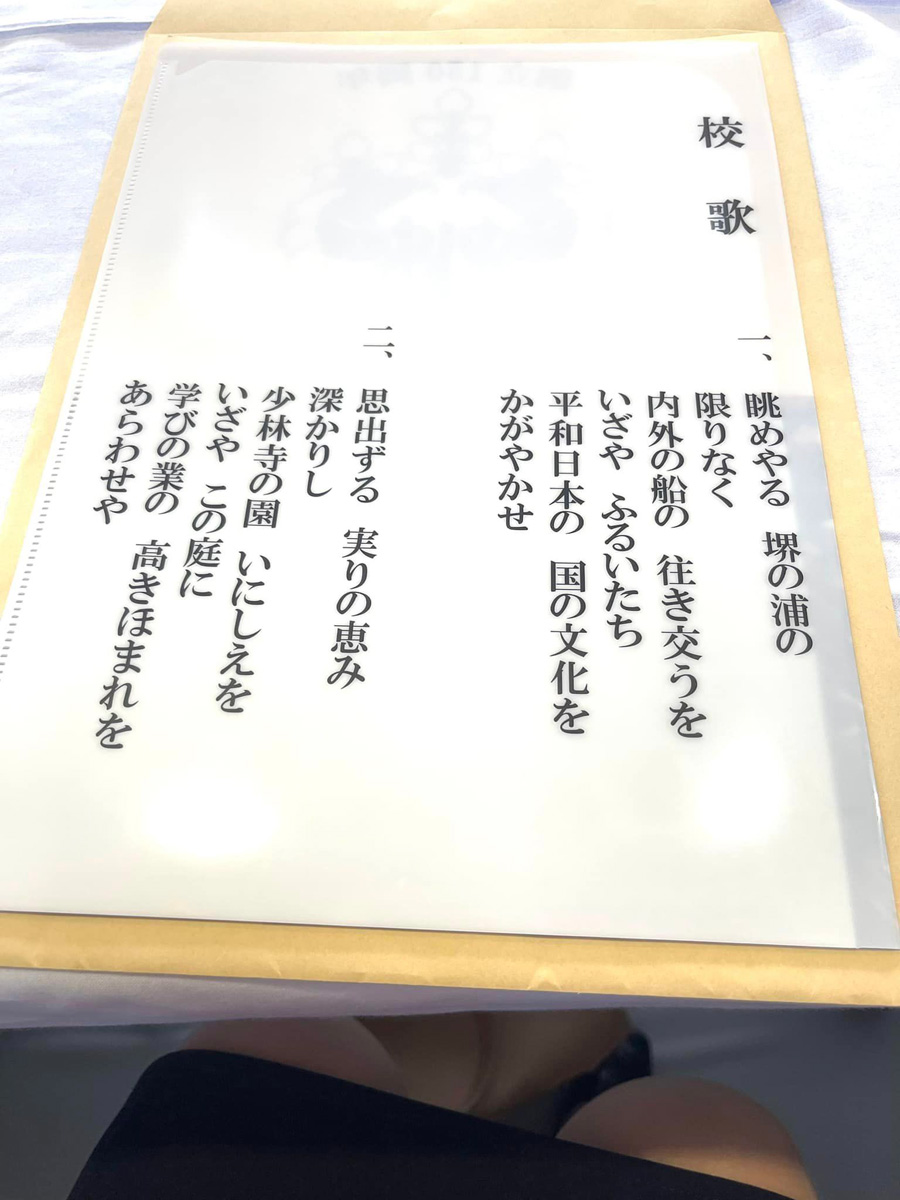 校歌
一、眺めやる　堺の浦の
限りなく
内外の船の　往き交うを
いざや　ふるいたち
平和日本の　国の文化を
かがやかせ
二、思出ずる　実りの恵み
深かりし
少林寺の園　いにしえを
いざや　この庭に
学びの業の　高きほまれを
あらわせや